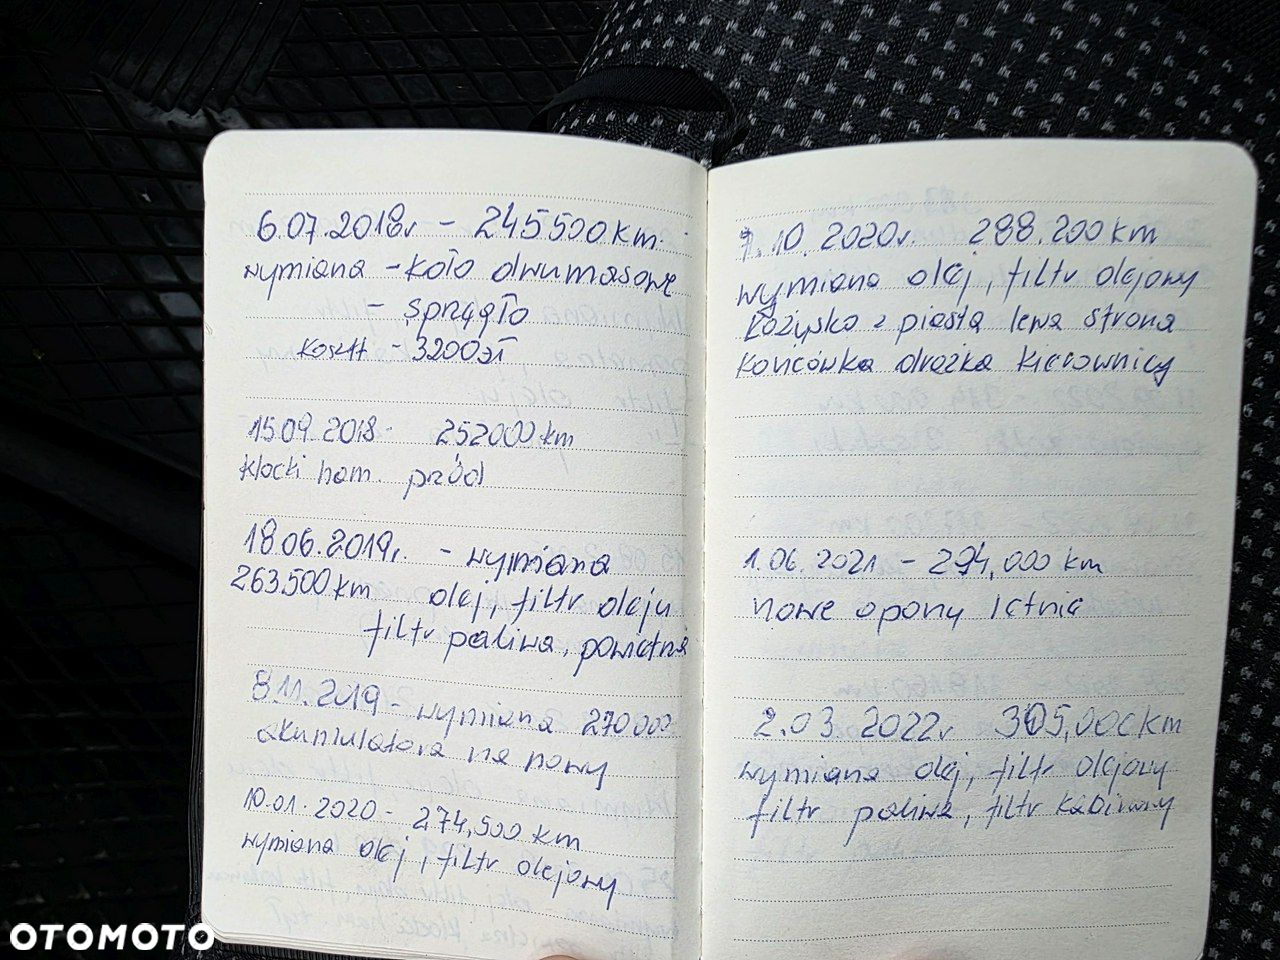 6.07.2018r - 245500km.
wymiana - koło dwumasowe
- sprzęgło
koszt - 3200zł
15.09.2018 - 252000km
klocki ham. przód
18.06.2019r. - wymiana
263.500km olej, filtr oleju
filtr paliwa, powietrza
8.11.2019 - wymiana 270000
akumulatora na nowy
10.01.2020 - 274,500 km
wymiana olej, filtr olejowy
7.10.2020r. 288.200km
wymiana olej, filtr olejowy
łożysko z piastą lewa strona
końcówka drążka kierownicy
1.06.2021 - 294,000 km
nowe opony letnie
2.03.2022r 305,000km
wymiana olej, filtr olejowy
filtr paliwa, filtr kabinowy
OTOMOTO